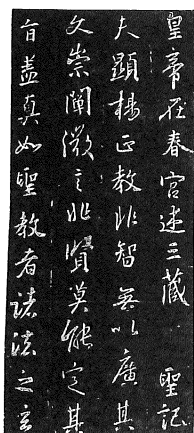 皇帝在春宮述三藏　聖記
夫顯揚正教非智無以廣其
文崇闡微言非賢莫能定其
旨蓋真如聖教者諸法之玄